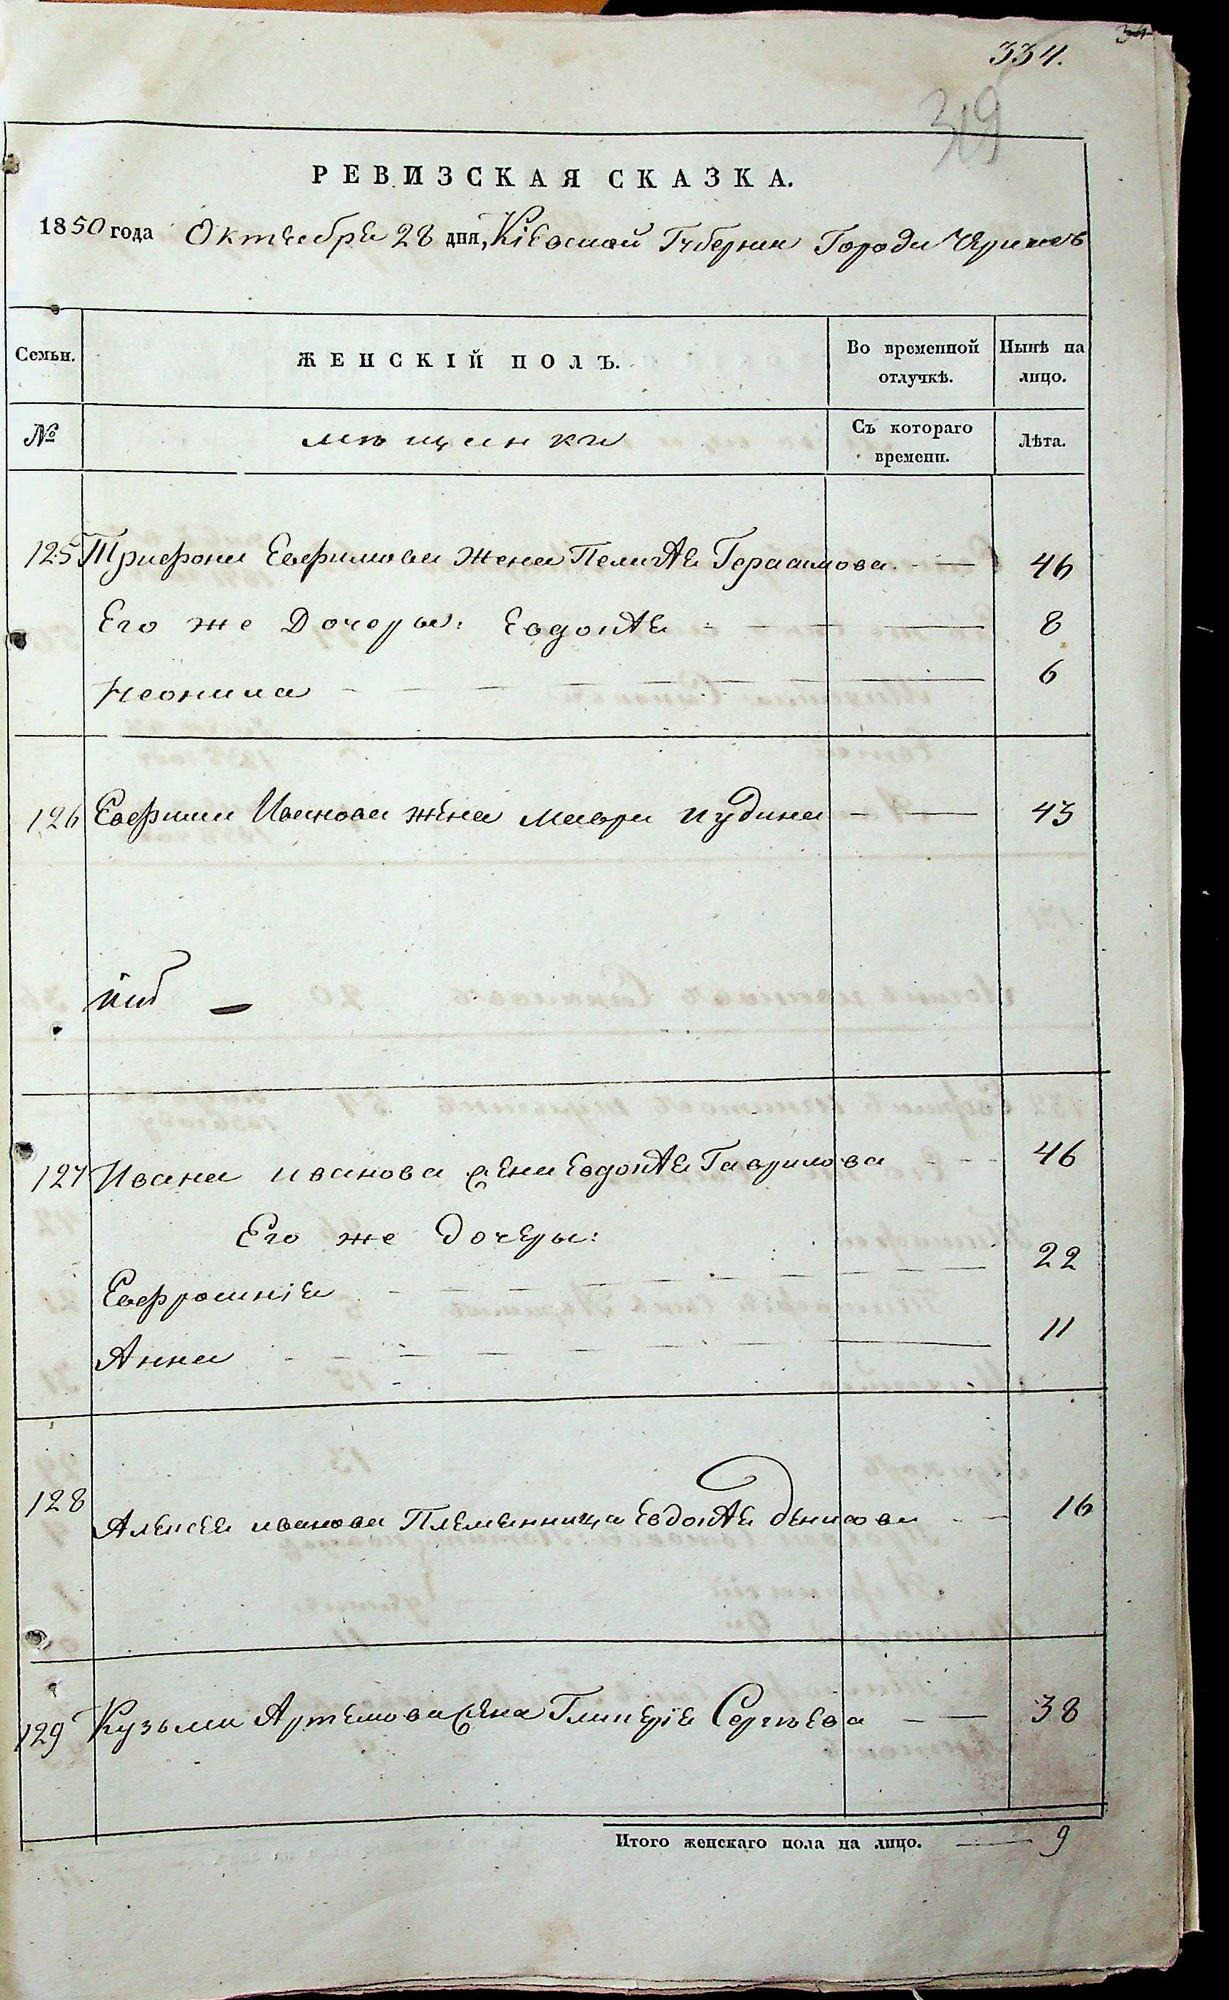 334.
319
РЕВИЗСКАЯ СКАЗКА.
1850 года Октября 28 дня, Кіевской Губерніи Города Черкасъ
Семьи. ЖЕНСКІЙ ПОЛЪ. Во временной отлучкѣ. Нынѣ на лицо.
№ мѣщанки Съ котораго времени. Лѣта.
125 Трифона Евфимова жена Пелагѣя Герасимова 46
Его же Дочеры: Евдокія 8
Неонила 6
126 Евфима Иванова жена Мавра Юдина 43
127 Ивана Иванова жена Евдокія Гаврилова 46
Его же дочеры:
Евфросинія 22
Анна 11
128 Алексея Иванова Племянница Евдокія Денисова 16
129 Кузьмы Артемова жена Гликерія Сергѣева 38
Итого женскаго пола на лицо. 9